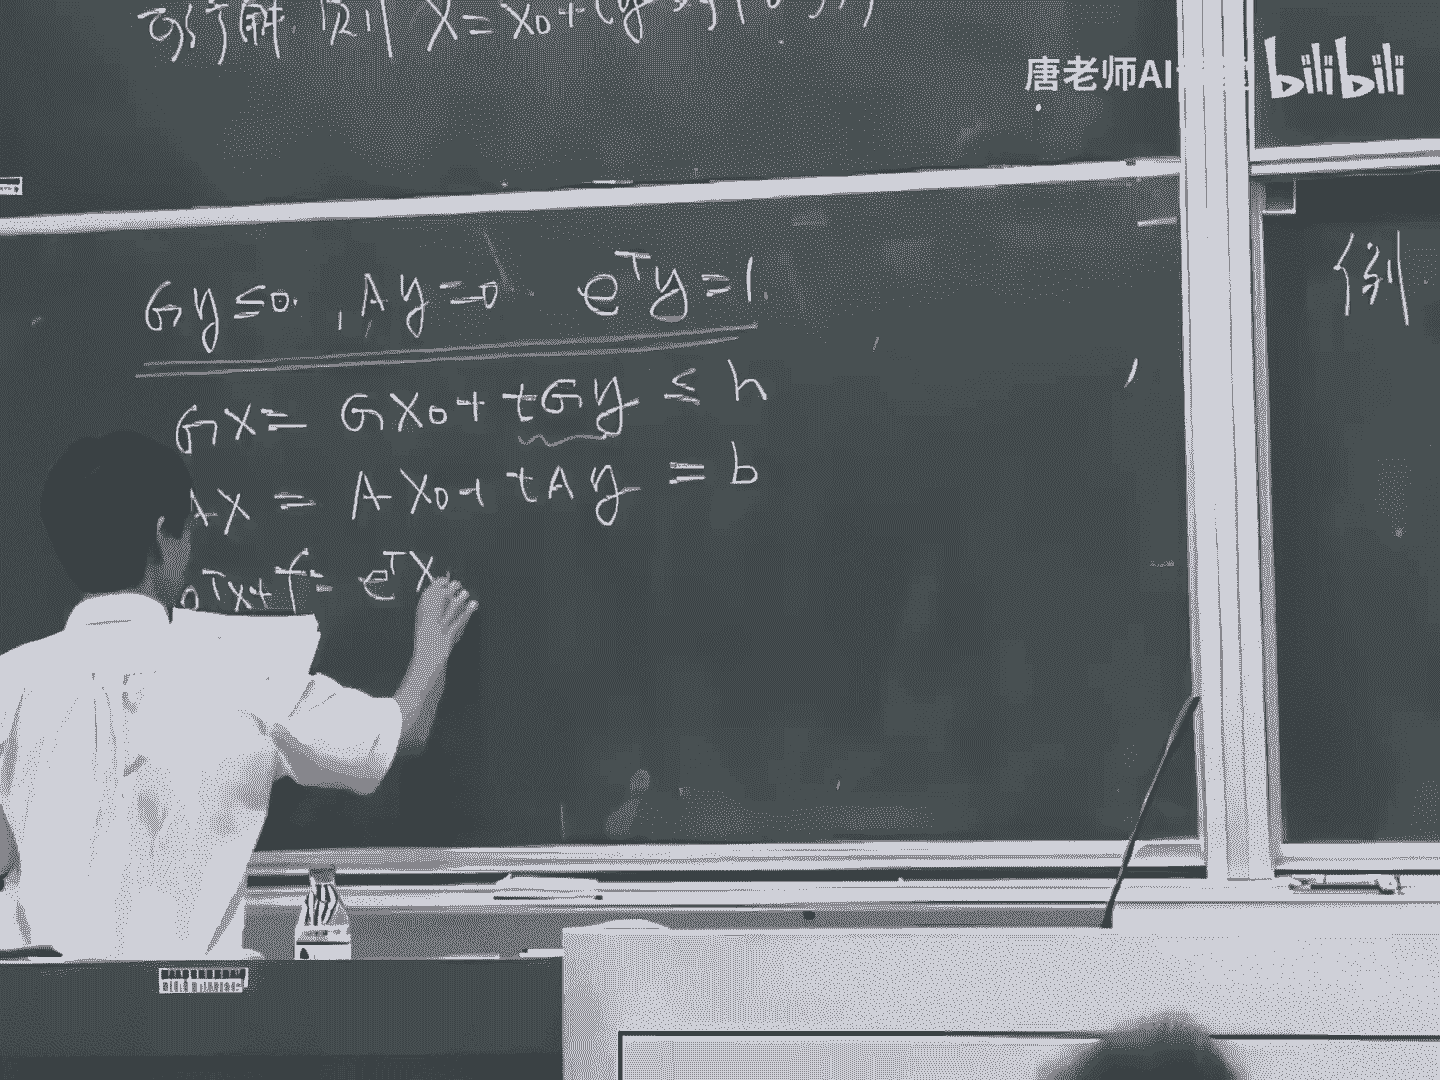 可行解, 则 X = X₀ +
唐老师AI
bilibili
Gy ≤ 0. , Ay = 0 eᵀy = 1.
例
GX = GX₀ + tGy ≤ h
AX = AX₀ + tAy = b
eᵀX + f = eᵀX